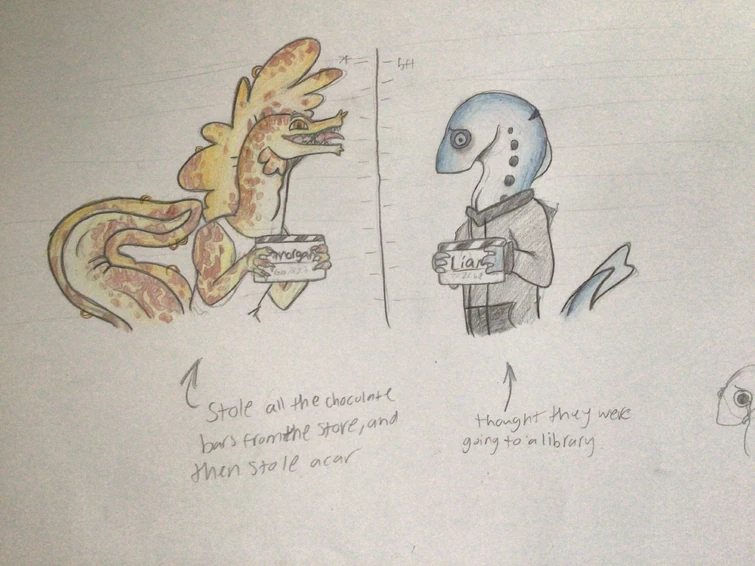 5ft
morgan
Liam
Stole all the chocolate
bars from the store, and
then stole a car
thought they were
going to a library